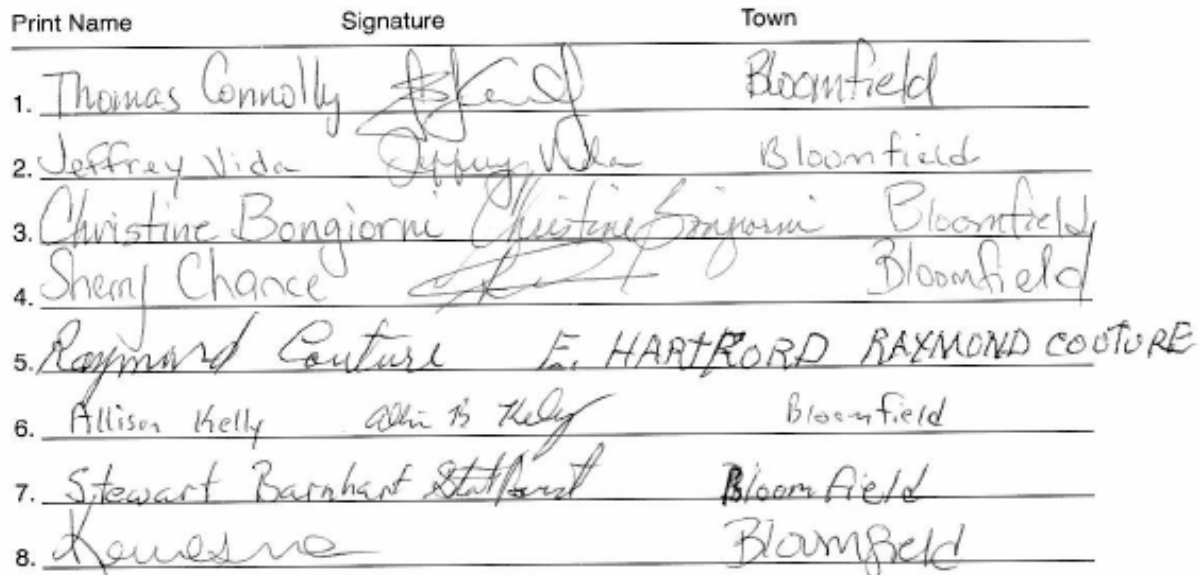 Print Name Signature Town
1. Thomas Connolly Bloomfield
2. Jeffrey Vida Jeffrey Vida Bloomfield
3. Christine Bongiorni Christine Bongiorni Bloomfield
4. Sherry Chance Bloomfield
5. Raymond Couture E. HARTFORD RAYMOND COUTURE
6. Allison Kelly B Kelly Bloomfield
7. Stewart Barnhart Bloomfield
8. Bloomfield